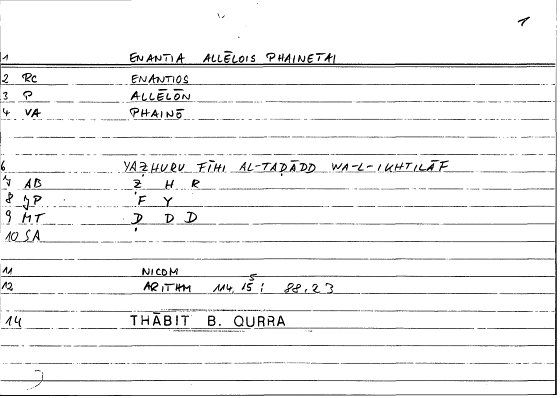 1
1 ENANTIA ALLĒLOIS PHAINETAI
2 RC ENANTIOS
3 P ALLĒLŌN
4 VA PHAINŌ
6 YAẒHURU FĪHI AL-TAḌĀDD WA-L-IKHTILĀF
7 AB Ẓ H R
8 JP F Y
9 MT Ḍ D D
10 SA
11 NICOM
12 ARITHM 114, 15 5 ; 88,23
14 THĀBIT B. QURRA